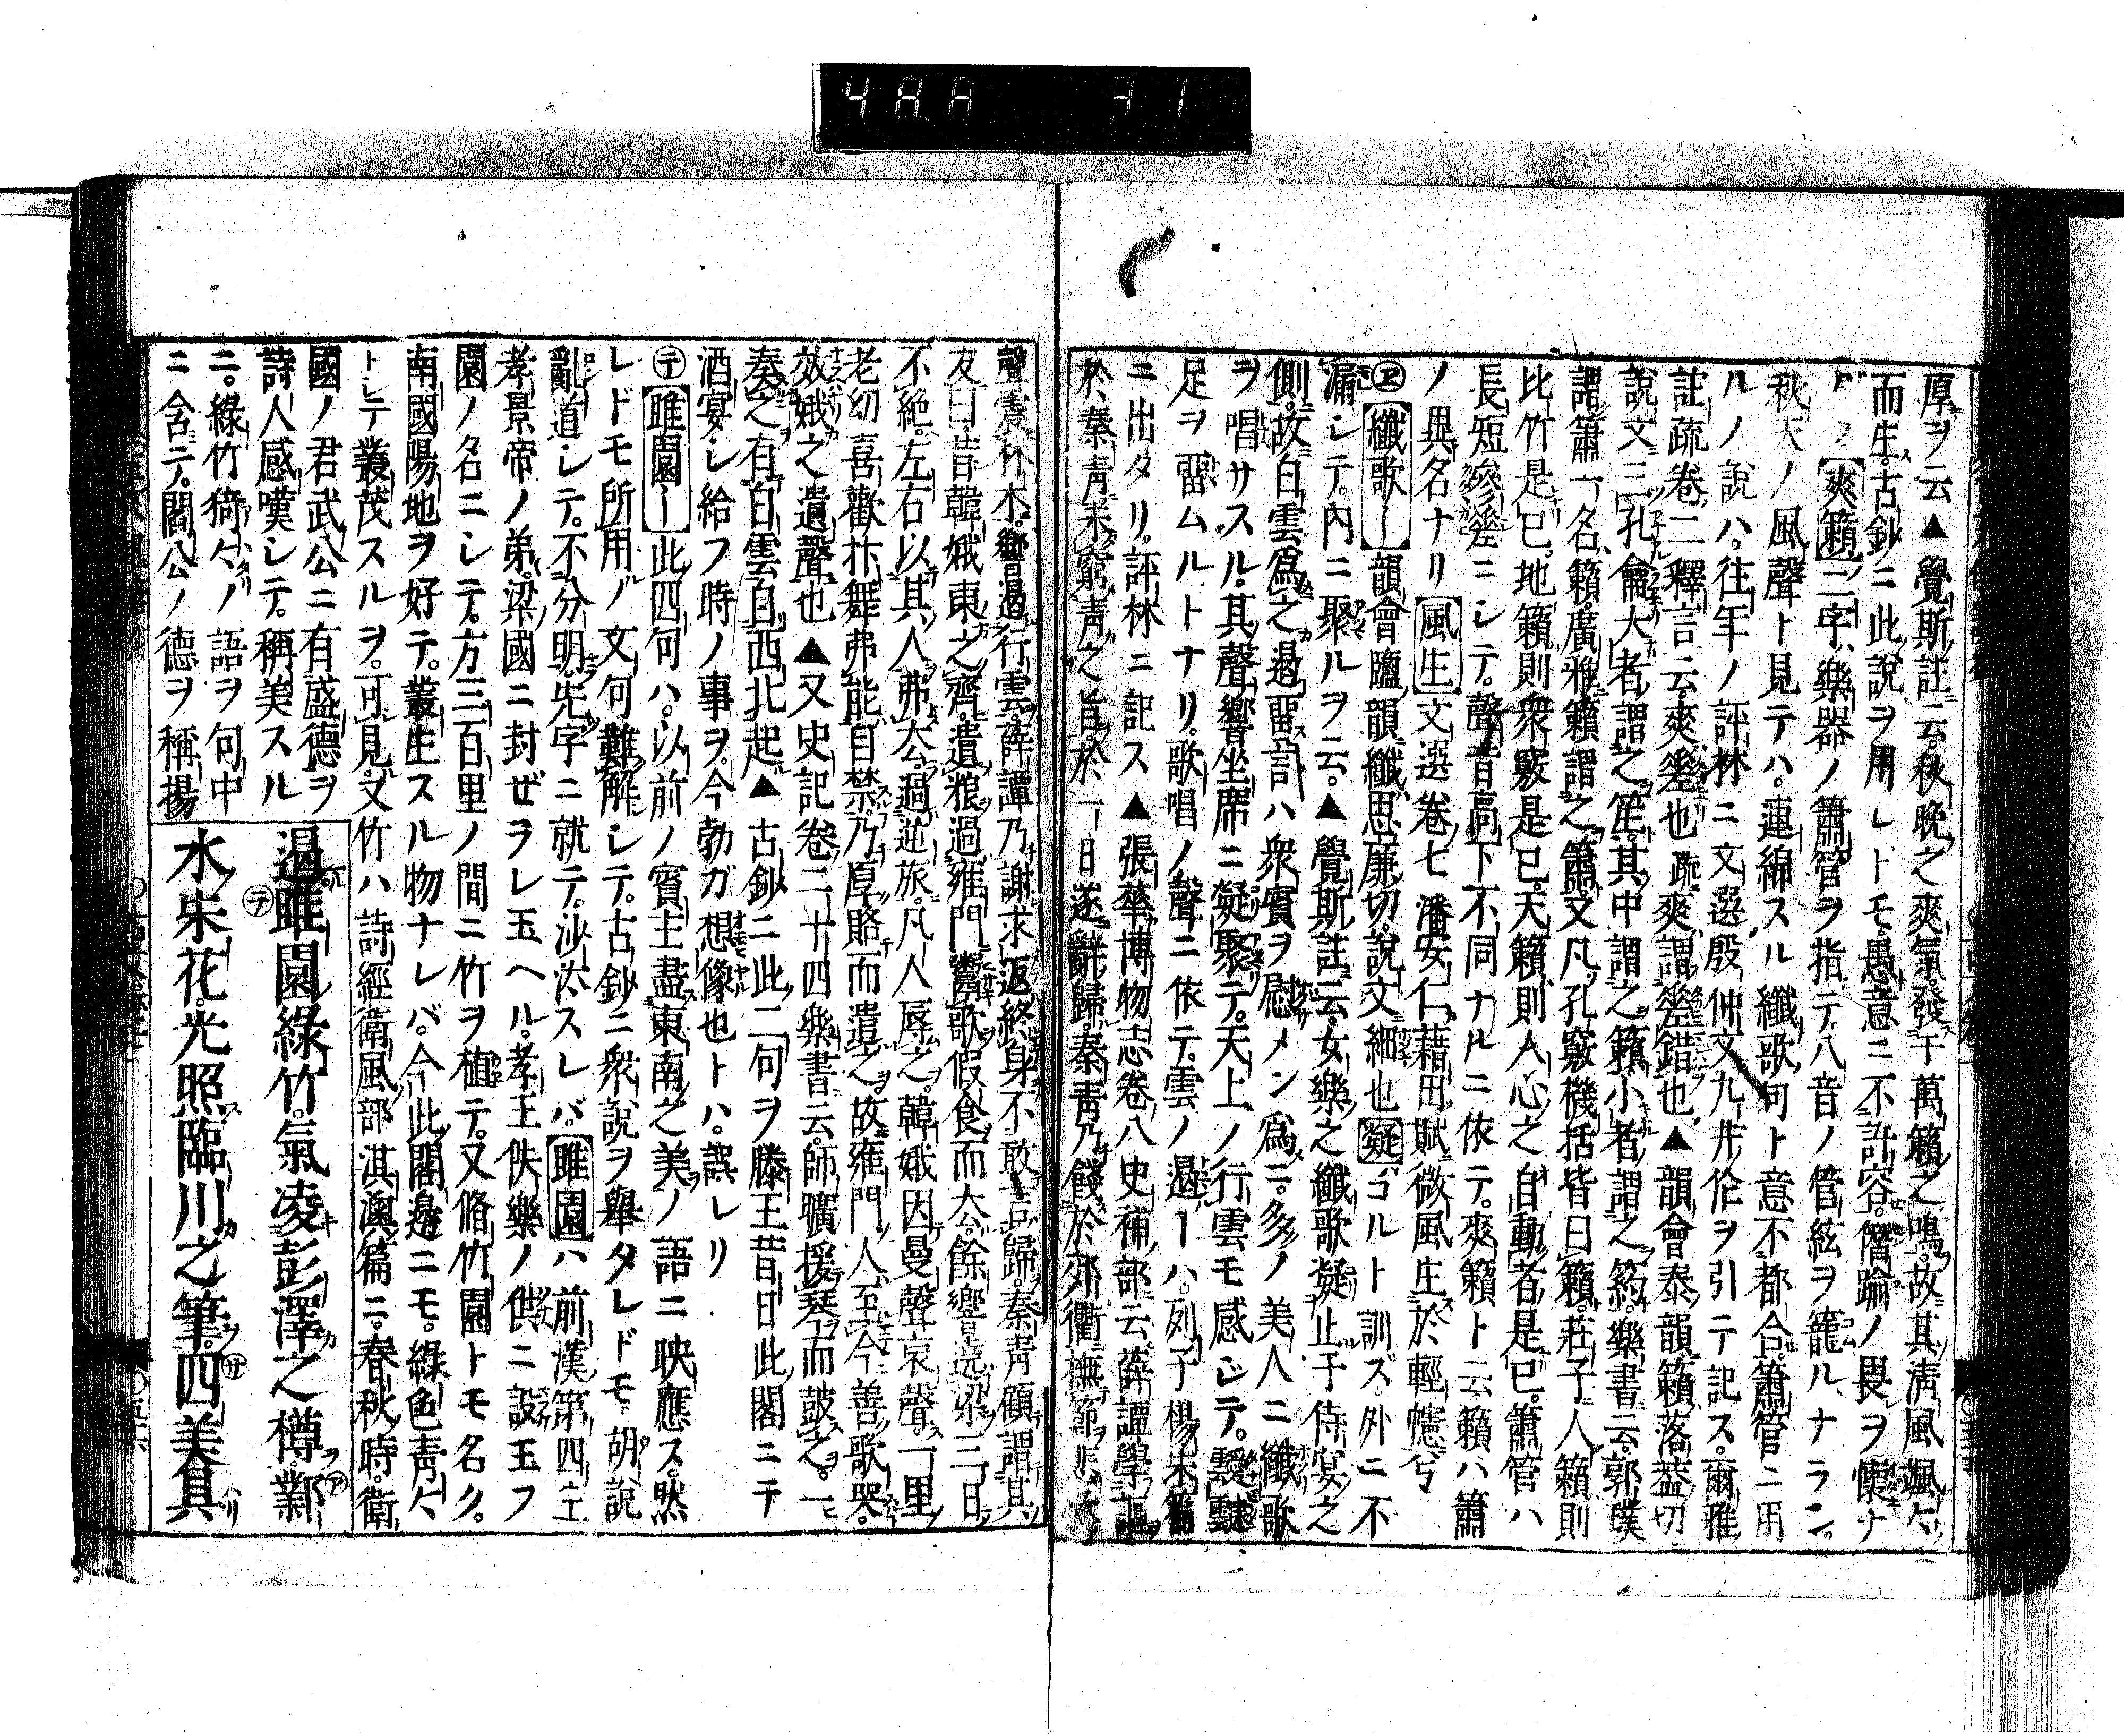 48A 41
厚ヲ云▲覺斯註云秋晩之爽氣發于萬籟之鳴故其淸風颯々
而生古鈔ニ此說ヲ用レドモ愚意ニ不許容僭踰ノ畏ヲ懷ナ
爽籟二字樂器ノ簫管ヲ指テ八音ノ管絃ヲ籠ルナラン
秋天ノ風聲ト見テハ連綿スル纖歌句ト意不都合簫管ニ用
ルノ說ハ往年ノ評林ニ文選殷仲文九井作ヲ引テ記ス爾雅
註疏卷二釋言云爽差也疏爽謂差錯也▲韻會泰韻籟落蓋切
說文三孔龠大者謂之笙其中謂之籟小者謂之箹樂書云郭璞
謂簫一名籟廣雅籟謂之簫又凡孔竅機括皆曰籟莊子人籟則
比竹是已地籟則衆竅是已天籟則人心之自動者是已簫管ハ
長短參差ニシテ聲音高下不同ナルニ依テ爽籟ト云籟ハ簫
ノ異名ナリ風生文選卷七潘安仁藉田賦微風生於輕幰兮
㋐纖歌ー韻會鹽韻纖思廉切說文細也凝ゴルト訓ズ外ニ不
漏シテ內ニ聚ルヲ云▲覺斯註云女樂之纖歌凝止于侍宴之
側故白雲爲之遏畱言ハ衆賓ヲ慰メン爲ニ多ノ美人ニ纖歌
ヲ唱サスル其聲響坐席ニ凝聚テ天上ノ行雲モ感シテ靉靆
足ヲ畱ムルトナリ歌唱ノ聲ニ依テ雲ノ遏ーハ列子楊朱篇
ニ出タリ評林ニ記ス▲張華博物志卷八史補部云薛譚學謳
於秦靑未窮靑之旨於一日遂辭歸秦靑乃餞於郊衢撫節悲
聲震林木響遏行雲薛譚乃謝求返終身不敢言歸秦靑顧謂其
友曰昔韓娥東之齊遺粮過雍門鬻歌假食而去餘響遶梁三日
不絕左右以其人弗去過逆旅凡人辱之韓娥因曼聲哀聲一里
老幼喜歡抃舞弗能自禁乃厚賂而遣之故雍門人至今善歌哭
效娥之遺聲也▲又史記卷二十四樂書云師曠援琴而鼓之一
奏之有白雲自西北起▲古鈔ニ此二句ヲ滕王昔日此閣ニテ
酒宴シ給フ時ノ事ヲ今勃ガ想像也トハ誤レリ
㋢睢園ー此四句ハ以前ノ賓主盡東南之美ノ語ニ映應ス然
レドモ所用ノ文句難解シテ古鈔ニ衆說ヲ擧タレドモ胡說
亂道シテ不分明先字ニ就テ沙汰スレバ睢園ハ前漢第四主
孝景帝ノ弟梁國ニ封ぜヲレ玉ヘル孝王佚樂ノ供ニ設玉フ
園ノ名ニシテ方三百里ノ間ニ竹ヲ植テ又脩竹園トモ名ク
南國陽地ヲ好テ叢生スル物ナレバ今此閣邊ニモ綠色靑々
トシテ叢茂スルヲ可見文竹ハ詩經衛風部淇澳篇ニ春秋時衛
國ノ君武公ニ有盛德ヲ
詩人感嘆シテ稱美スル
ニ綠竹猗々ノ語ヲ句中
ニ含ニテ閻公ノ德ヲ稱揚
遏睢園綠竹氣凌彭澤之樽鄴
水朱花光照臨川之筆四美具